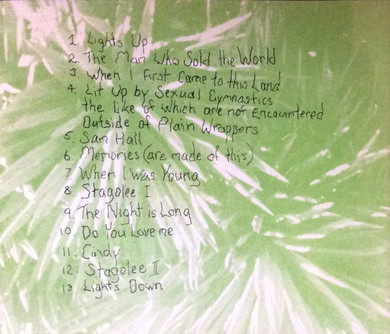 1 Lights Up
2. The Man Who Sold the World
3 When I First Came to this Land
4. Lit Up by Sexual Gymnastics
the like of which are not Encountered
Outside of Plain Wrappers
5. Sam Hall
6. Memories (are made of this)
7 When I was Young
8 Stagolee I
9. The Night is Long
10. Do You Love me
11. Cindy
12 Stagolee II
13 Lights Down